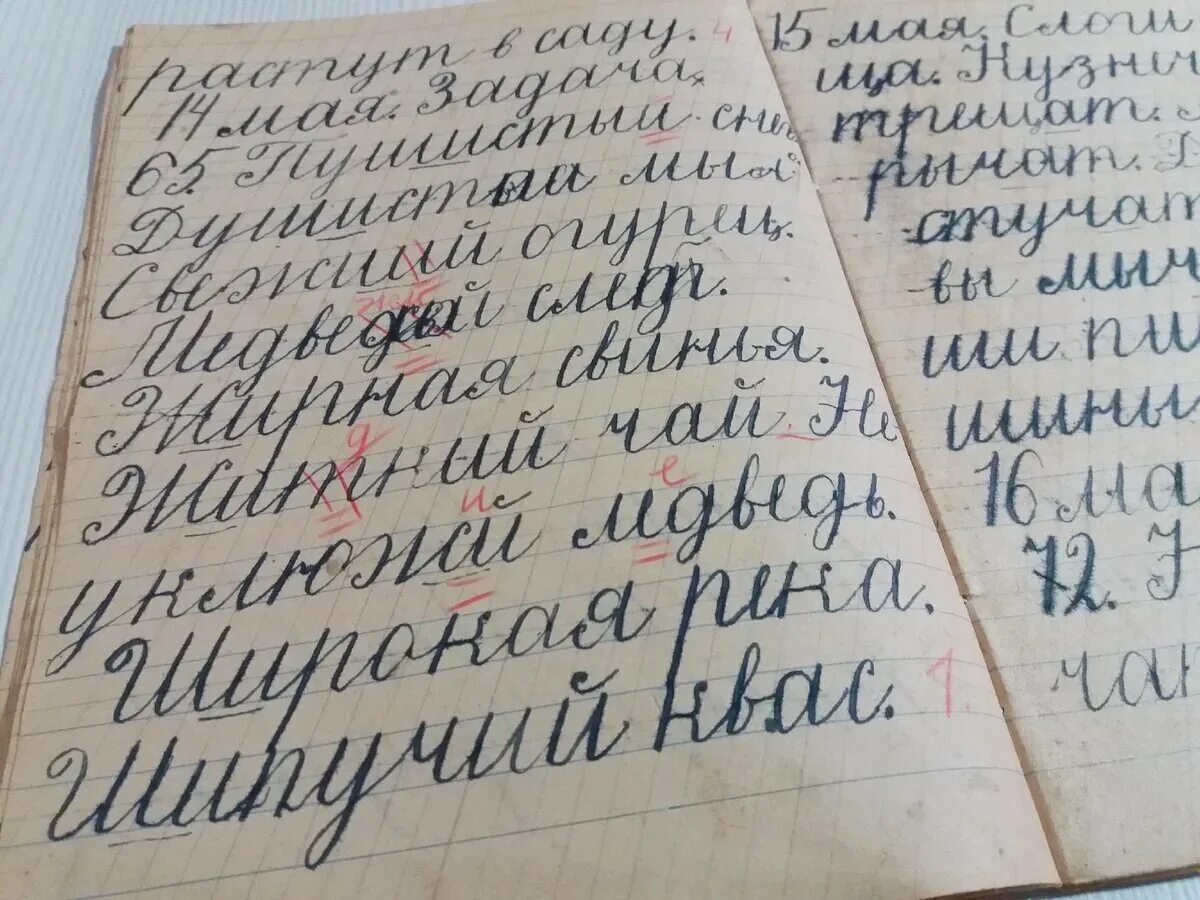 растут в саду. 4
14 мая. Задача.
65. Пушистый снег
Душистыа мыла
Свежиий огурец.
Медвежый след.
Жирная свинья.
д
Житкий чай. Не
и е
уклюжай мдведь.
Широкая река.
Шипучий квас. 1.
15 мая. Слоги
ща. Кузнеч
трещат.
рычат.
стучат
вы мыч
ши пи
шины
16 ма
72. 
чан